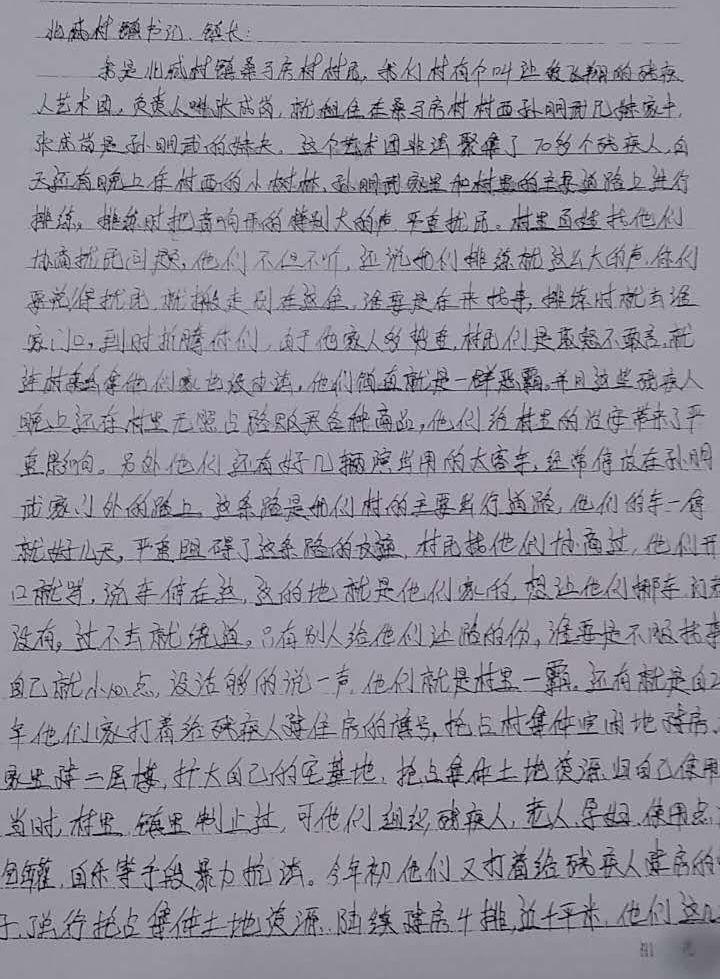 北臧村镇书记、镇长:
我是北臧村镇桑马房村村民,我们村有个叫让爱飞翔的残疾
人艺术团,负责人叫张成岗,就租住在桑马房村村西孙明武兄妹家中,
张成岗是孙明武的妹夫。这个艺术团非法聚集了70多个残疾人,白
天还有晚上在村西的小树林,孙明武家里和村里的主要道路上进行
排练,排练时把音响开的特别大的声,严重扰民。村里百姓找他们
协商扰民问题,他们不但不听,还说他们排练就这么大的声,你们
要觉得扰民,就搬走别在这住,谁要是在来找事,排练时就去谁
家门口,到时折腾你们,由于他家人多势重,村民们是敢怒不敢言,就
连村委会拿他们家也没办法,他们简直就是一群恶霸。并且这些残疾人
晚上还在村里无照占路贩买各种商品,他们给村里的治安带来了严
重影响。另外他们还有好几辆演出用的大客车,经常停放在孙明
武家门外的路上,这条路是我们村的主要出行道路,他们的车一停
就好几天,严重阻碍了这条路的交通,村民找他们协商过,他们开
口就骂,说车停在这,这的地就是他们家的,想让他们挪车门都
没有,过不去就绕道,只有别人给他们让路的份,谁要是不服找事
自己就小心点,没法够的说一声,他们就是村里一霸。还有就是自2
年他们家打着给残疾人建住房的旗号,抢占村集体空闲地建房、
家里建二层楼,扩大自己的宅基地,抢占集体土地资源归自己使用
当时,村里、镇里制止过,可他们组织残疾人,老人、孕妇,使用点
包罐、自杀等手段暴力抗法。今年初他们又打着给残疾人建房的
子,强行抢占集体土地资源,陆续建房4排,近千平米,他们这几